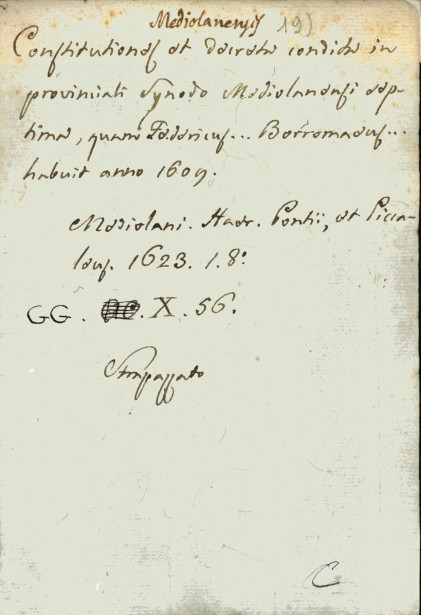 Mediolanensis 19)
Constitutiones et decreta condita in
provinciali synodo Mediolanensi sep-
tima, quam Federicus... Borromaeus...
habuit anno 1609.
Mediolani. Haer. Pontii, et Picca-
leus. 1623. 1. 8º
GG. X. 56.
Strapazzato
C